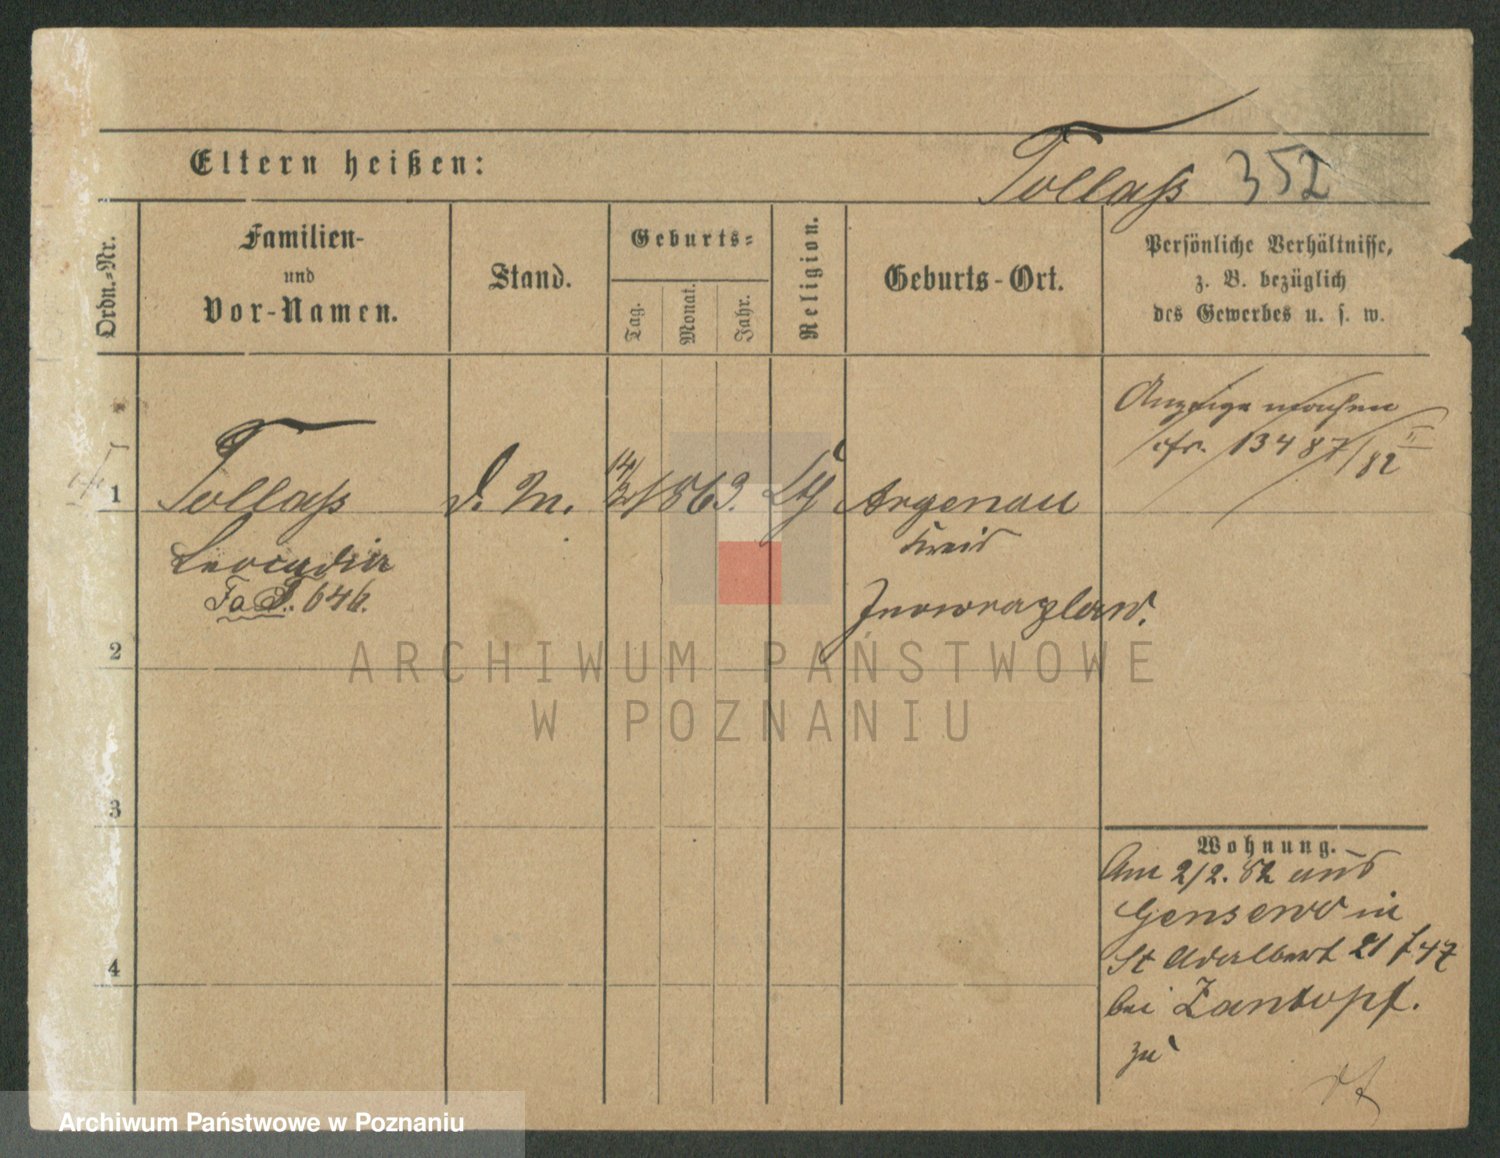 Eltern heißen:
Tollaß 352
Ordn.-Nr.
Familien-
und
Vor-Namen.
Stand.
Geburts-
Tag.
Monat.
Jahr.
Religion.
Geburts-Ort.
Persönliche Verhältnisse,
z. B. bezüglich
des Gewerbes u. s. w.
Anzeige machen
cfr. 13487/82 II
1
Tollaß
d. M.
14/2 1863.
Argenau
Leocadia
Kreis
Fa 646.
Inowrazlaw.
2
ARCHIWUM PAŃSTWOWE
W POZNANIU
3
Wohnung.
Am 2/2. 82 aus
Gensewo in
St Adalbert 21
4
bei Zantopf.
zu
Archiwum Państwowe w Poznaniu